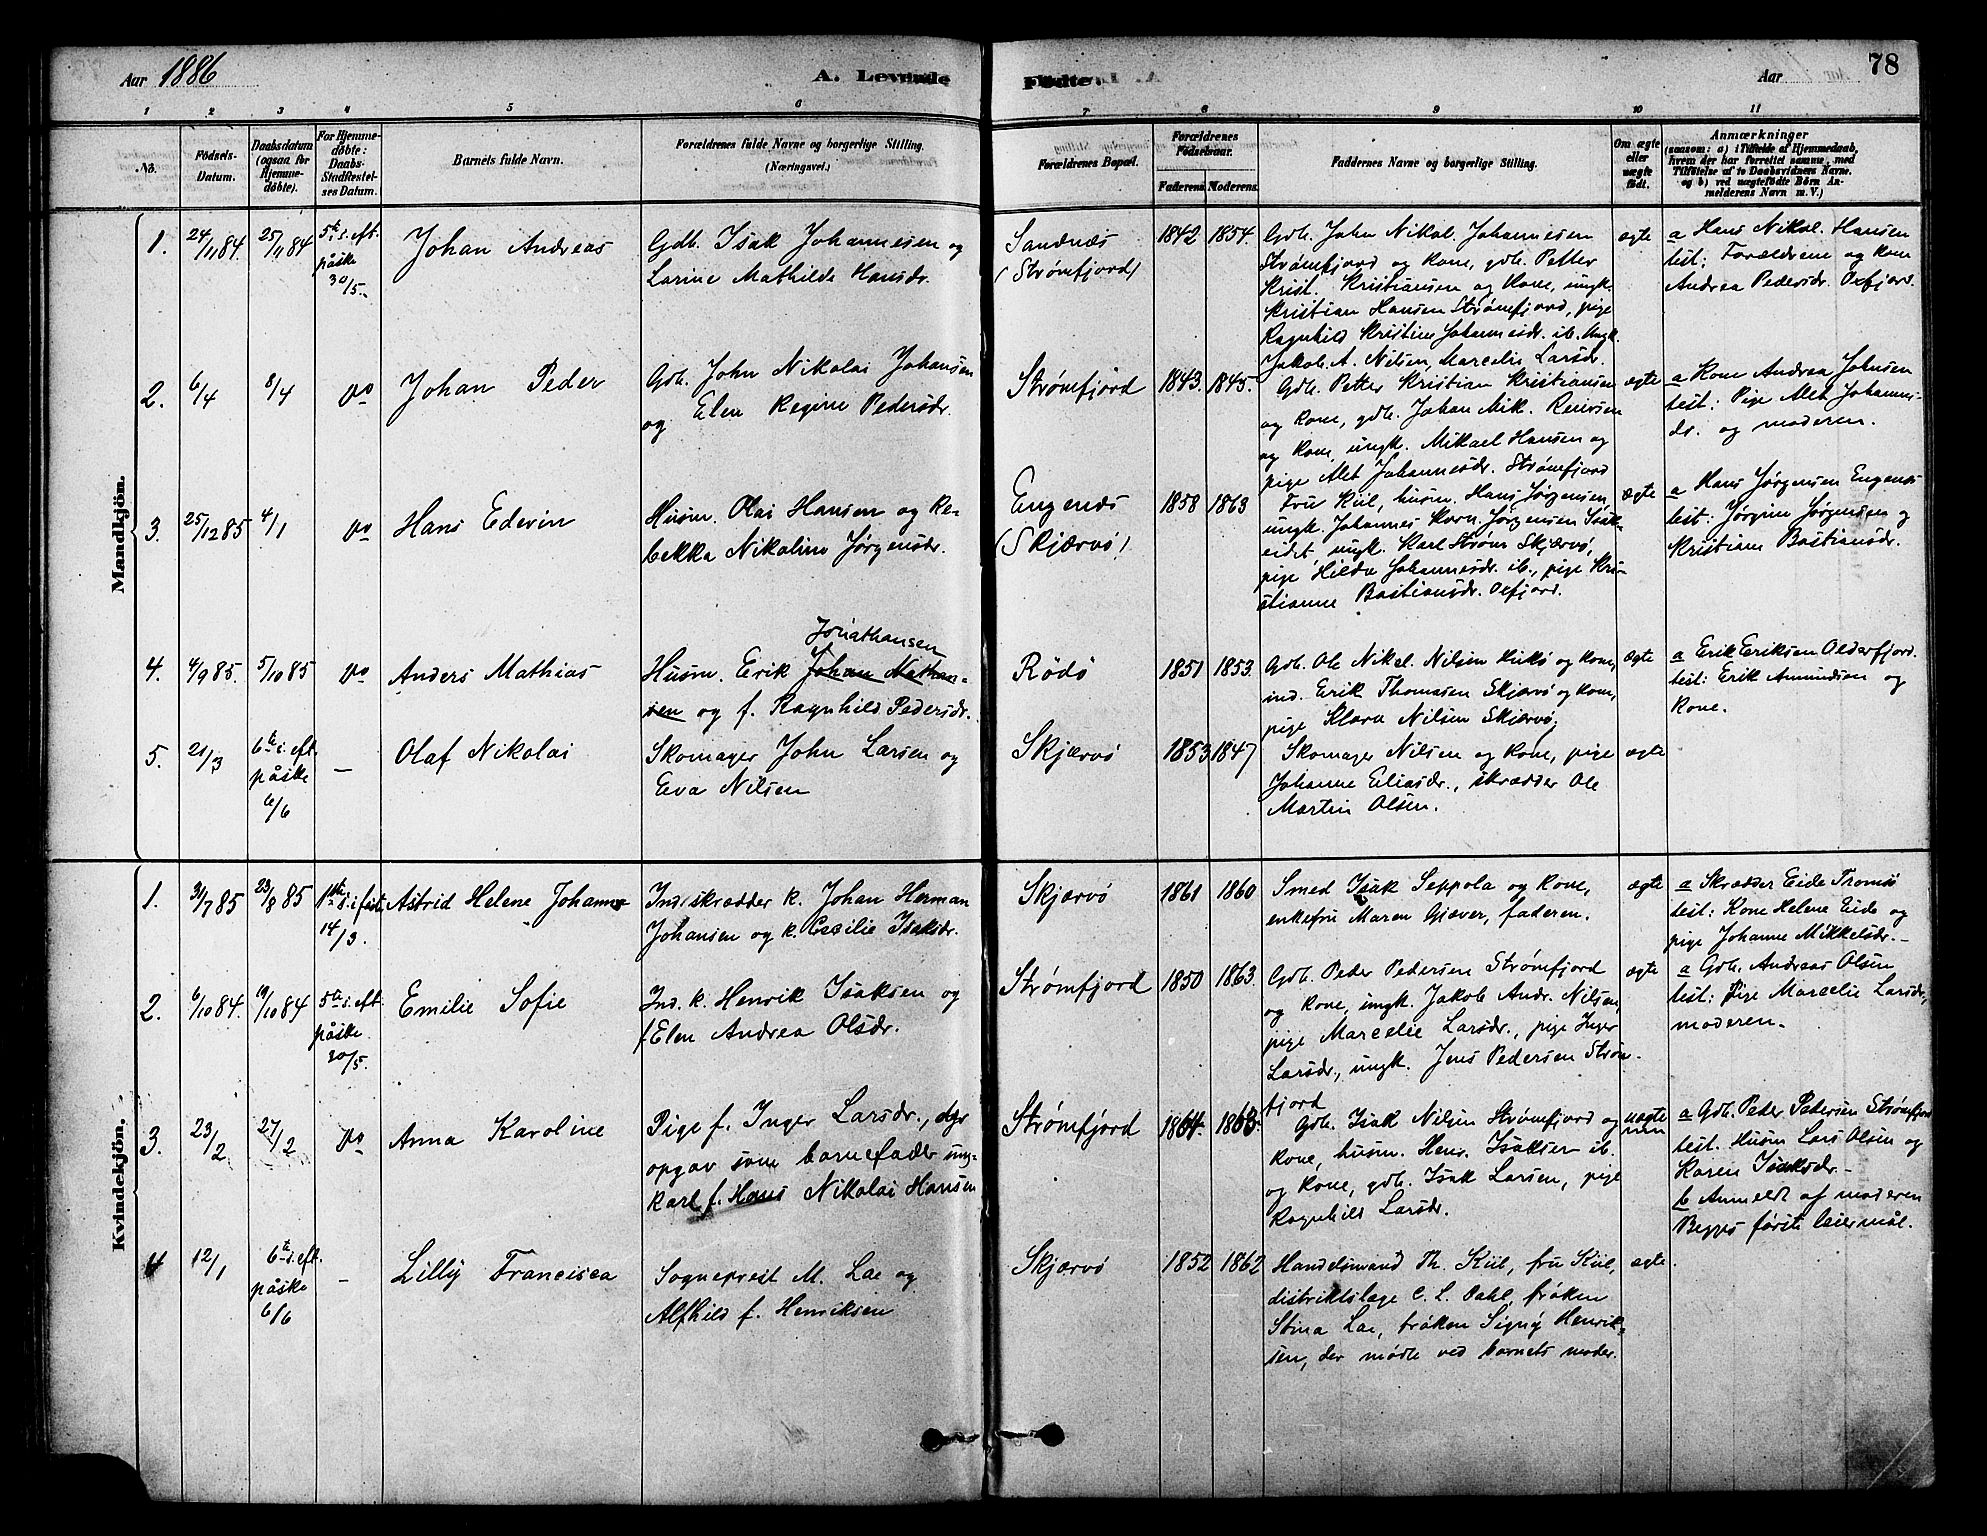 Aar 1886
A. Levende
Fødte.
Aar
78
1 2 3 4 5 6 7 8 9 10 11
No.
Fødsels-
Datum.
Daabsdatum
(ogsaa for
Hjemme-
døbte).
For Hjemme-
døbte:
Daabs-
Stadfæstel-
ses Datum.
Barnets fulde Navn.
Forældrenes fulde Navne og borgerlige Stilling.
(Næringsvei.)
Forældrenes Bopæl.
Forældrenes
Fødselsaar.
Faderens. Moderens.
Faddernes Navne og borgerlige Stilling.
Om ægte
eller
uægte
født.
Anmærkninger
(saasom: a) i Tilfælde af Hjemmedaab,
hvem der har forrettet samme, med
Tilføielse af to Daabsvidners Navne,
og b) ved uægtefødte Børn An-
melderens Navn m. V.)
Mandkjön.
1.
24/11 84.
25/11 84
5te s. eft.
påske
30/5.
Johan Andreas
Gdb. Isak Johannesen og
Larine Mathilde Hansdr.
Sandnæs
(Strømfjord)
1842 1854.
Gdb. John Nikol. Johannesen
Strømfjord og kone, gdb. Petter
Krist. Kristiansen og kone, ungk.
Kristian Hansen Strømfjord, pige
Ragnhild Kristine Johannesdr. ib. Ungk.
Jakob A. Nilsen, Marcelie Larsdr.
ægte
a Hans Nikol. Hansen
test: Forældrene og kone
Andrea Pedersdr. Oxfjord.
2.
6/4
8/4
do
Johan Peder
Gdb. John Nikolai Johansen
og Elen Regine Pedersdr.
Strømfjord
1843. 1845.
Gdb. Petter Kristian Kristiansen
og kone, gdb. Johan Mik. Reiersen
og kone, ungk. Mikael Hansen og
pige Alet Johannesdr. Strømfjord
ægte
a Kone Andrea Johnsen
test: Pige Alet Johannes-
dr. og moderen.
3.
25/12 85
4/1
do
Hans Edevin
Husm. Olai Hansen og Re-
bekka Nikoline Jørgensdr.
Engenæs
(Skjærvø)
1858 1863
Fru Kiil, husm. Hans Jørgensen,
ungk. Johannes Korn. Jørgensen Isak-
eidet, ungk. Karl Strøm Skjærvø,
pige Hilda Johannesdr. ib., pige Kri-
stianne Bastiansdr. Oxfjord.
ægte
a Hans Jørgensen Engenæs
test: Jørgine Jørgensen og
Kristiane Bastiansdr.
4.
4/9 85.
5/10 85
do
Anders Mathias
Jonathansen
Husm. Erik Johan Nathan-
sen og f. Ragnhild Pedersdr.
Rödö
1851 1853.
Gdb. Ole Nikol. Nilsen Kukø og kone,
ind. Erik Thomasen Skjærvø og kone,
pige Klara Nilsen Skjærvø.
ægte
a Erik Eriksen Olderfjord.
test: Erik Amundsen og
kone.
5.
21/3
6te s. eft.
påske
6/6
—
Olaf Nikolai
Skomager John Larsen og
Eva Nilsen
Skjærvö
1853 1847
Skomager Nilsen og kone, pige
Johanne Eliasdr., skrædder Ole
Martin Olsen.
ægte
Kvindekjön.
1.
31/7 85
23/8 85
1te s. i fast.
14/3.
Astrid Helene Johanne
Ind. skrædder k. Johan Herman
Johansen og k. Cecilie Isaksdr.
Skjærvö
1861 1860
Smed Isak Seppola og kone,
enkefru Maren Gjæver, faderen.
ægte
a Skrædder Eide Tromsö
test: Kone Helene Eide og
pige Johanne Mikkelsdr.—
2.
6/10 84.
19/10 84
5te s. eft.
påske
30/5.
Emilie Sofie
Ind. k. Henrik Isaksen og
f. Elen Andrea Olsdr.
Strømfjord
1850 1863.
Gdb. Peder Pedersen Strømfjord
og kone, ungk. Jakob Andr. Nilsen,
pige Marcelie Larsdr., pige Inger
Larsdr., ungk. Jens Pedersen Strøm-
fjord
ægte
a Gdb. Andreas Olsen
test: Pige Marcelie Larsdr,
moderen.
3.
23/2
27/2
do
Anna Karoline
Pige f. Inger Larsdr., der
opgav som barnefader ung-
karl f. Hans Nikolai Hansen
Strømfjord
1864. 1863.
Gdb. Isak Nilsen Strømfjord og
kone, husm. Henr. Isaksen ib.
og kone, gdb. Isak Larsen, pige
Ragnhild Larsdr.
uægte
a Gdb. Peder Pedersen Strømfjord
test. Husm Lars Olsen og
Karen Isaksdr.—
b Anmeldt af moderen
Begges første leiermål.
4
12/1
6te s. eft.
påske
6/6
—
Lilly Francisca
Sogneprest M. Lae og
Alfhild f. Henriksen
Skjærvö
1852 1862
Handelsmand Th. Kiil, fru Kiil,
distriktslæge C. L. Dahl, frøken
Stina Lae, frøken Signy Henrik-
sen, der mødte ved barnets moder.
ægte